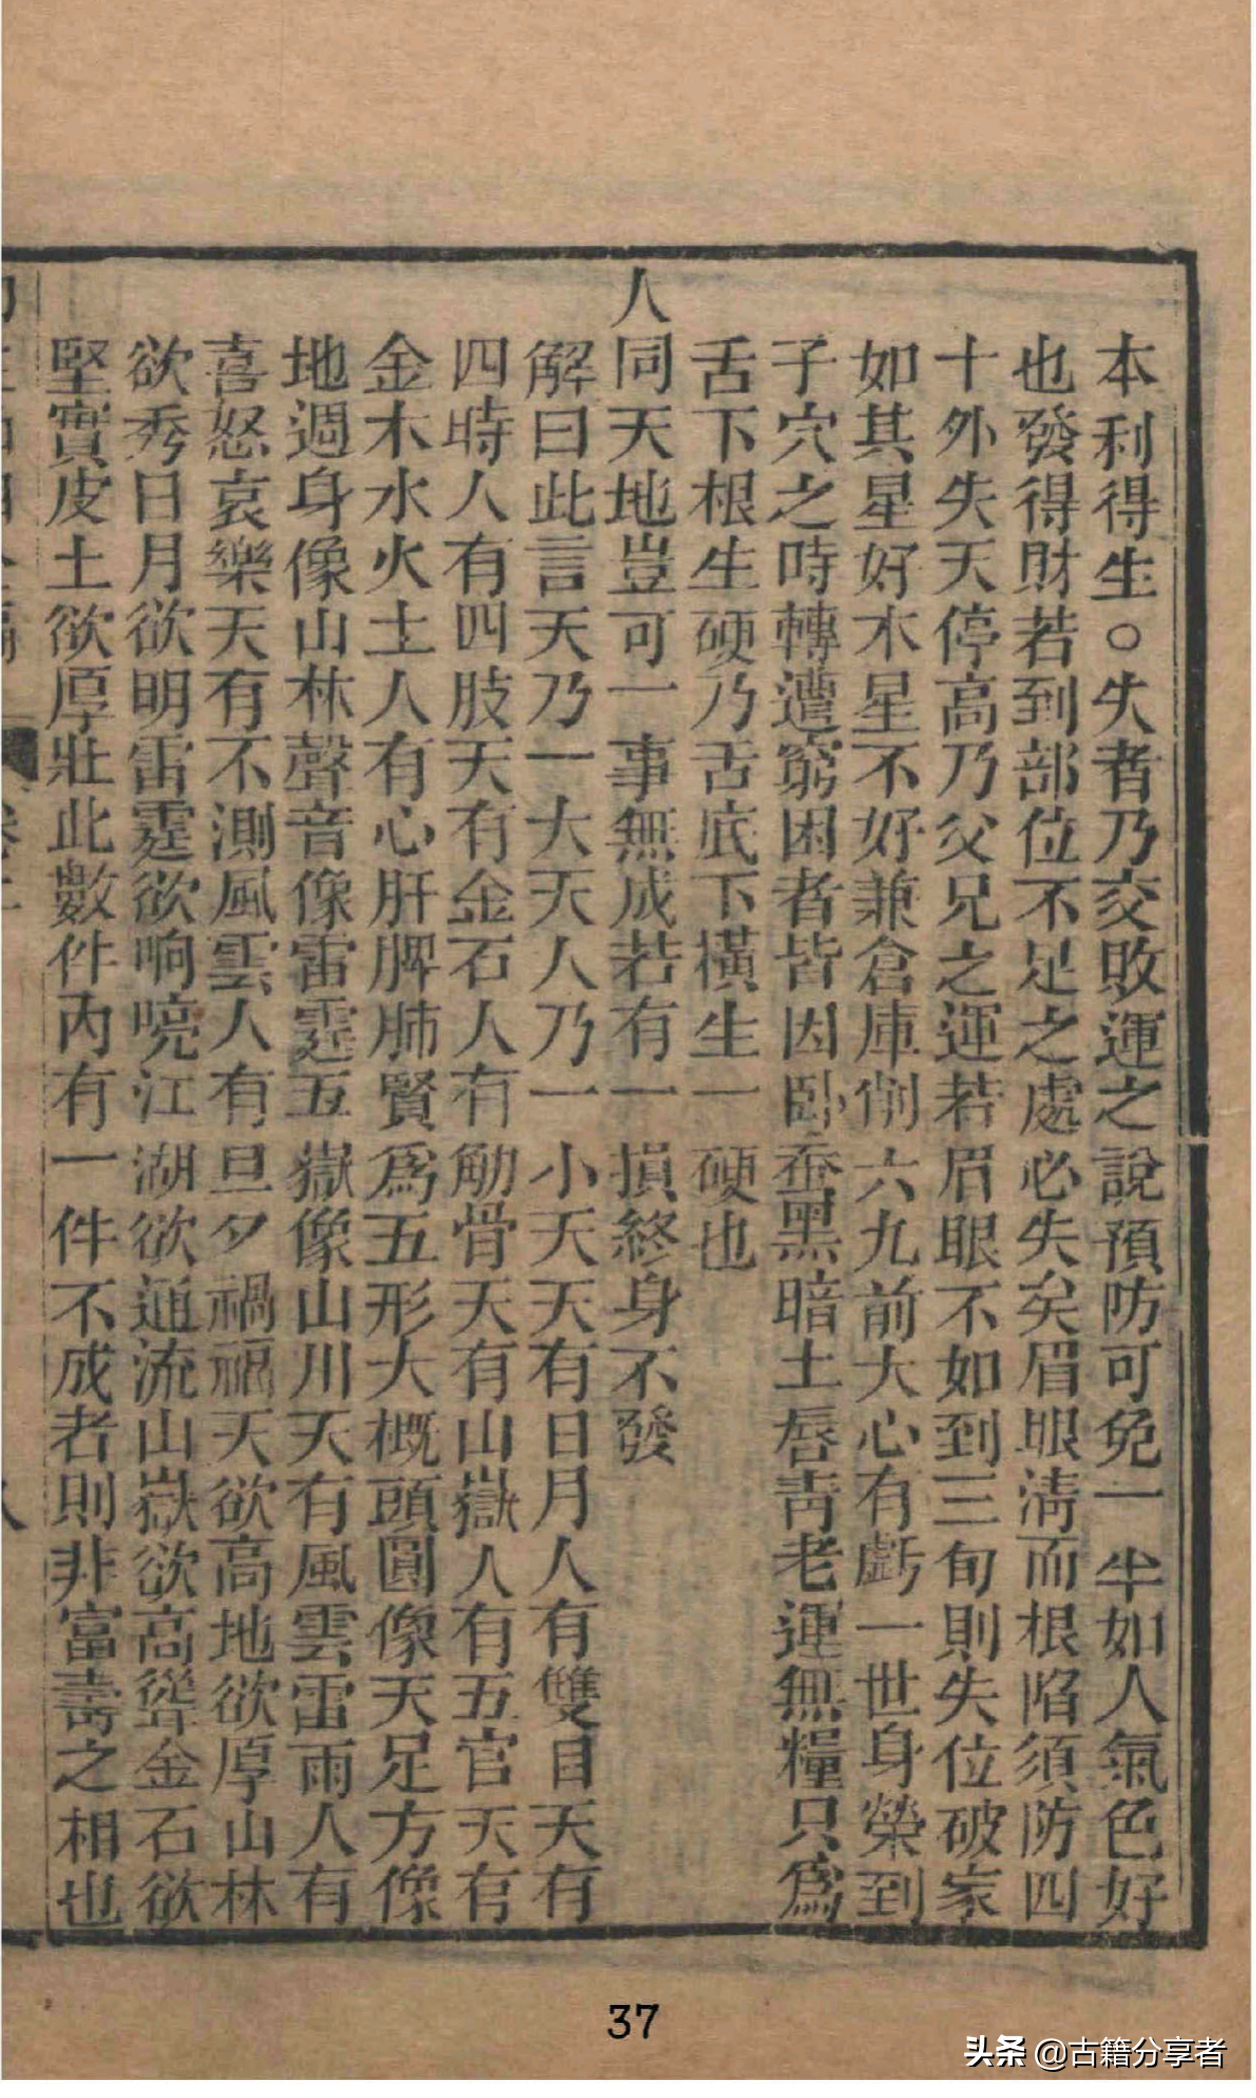 本利得生○失者乃交敗運之說預防可免一半如人氣色好
也發得財若到部位不足之處必失矣眉眼淸而根陷須防四
十外失天停高乃父兄之運若眉眼不如到三旬則失位破家
如其星好木星不好兼倉庫削六九前大心有虧一世身榮到
子穴之時轉遭窮困者皆因卧蚕黑暗土唇靑老運無糧只爲
舌下根生硬乃舌底下橫生一硬也
人同天地豈可一事無成若有一損終身不發
解曰此言天乃一大天人乃一小天天有日月人有雙目天有
四時人有四肢天有金石人有觔骨天有山嶽人有五官天有
金木水火土人有心肝脾肺賢爲五形大概頭圓像天足方像
地週身像山林聲音像雷霆五嶽像山川天有風雲雷雨人有
喜怒哀樂天有不測風雲人有旦夕禍福天欲高地欲厚山林
欲秀日月欲明雷霆欲响喨江湖欲通流山嶽欲高聳金石欲
堅實皮土欲厚壯此數件內有一件不成者則非富壽之相也
37
头条 @古籍分享者